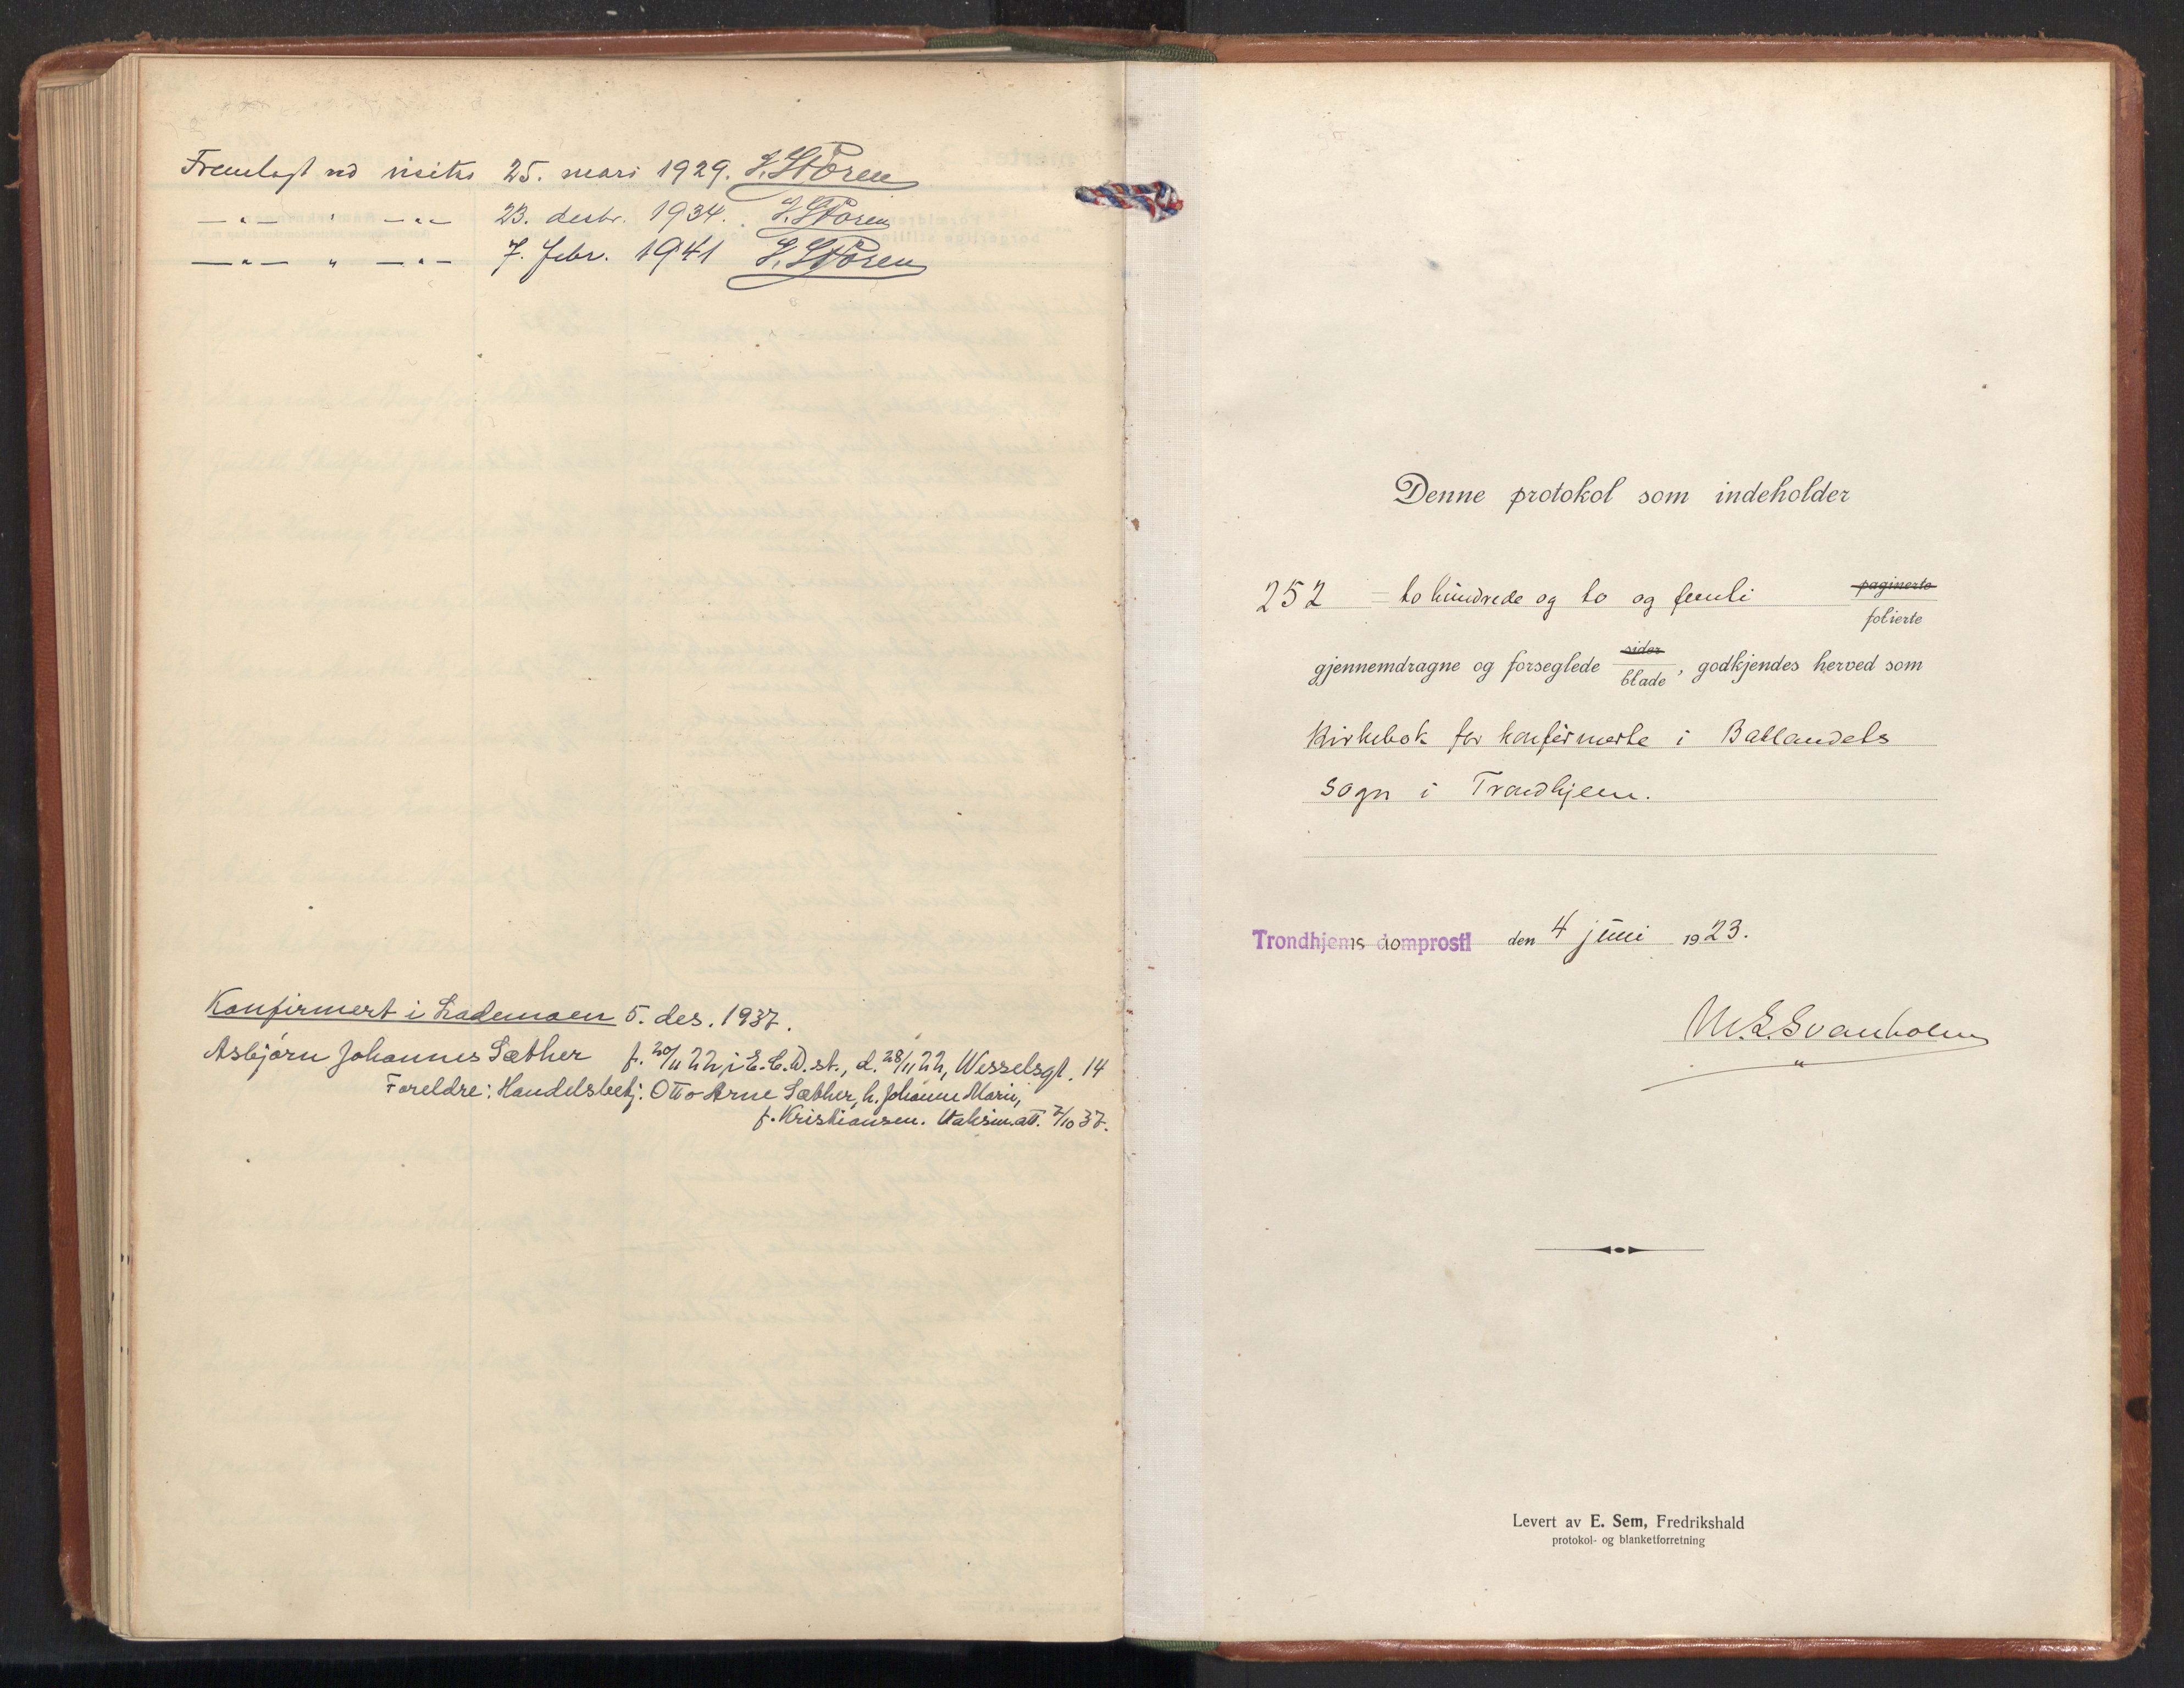 Fremlagt ved visitas 25. mars 1929. J. Støren
—"— " —"— 23. desbr. 1934. J. Støren
—"— " —"— 7. febr. 1941 J. Støren
Konfirmert i Lademoen 5. des. 1937.
Asbjørn Johannes Sæther f. 20/11 22 i E.C.D. st., d. 28/11 22, Wesselsgt. 14
Foreldre: Handelsbetj. Otto Arne Sæther, h. Johanne Marie,
f. Kristiansen. Vaksin.att. 2/10 37.
Denne protokol som indeholder
252 = to hundrede og to og femti paginerte
folierte
gjennemdragne og forseglede sider
blade, godkjendes herved som
Kirkebok for konfirmerte i Baklandets
sogn i Trondhjem.
Trondhjems domprosti den 4 juni 1923.
M.E. Svanholm
Levert av E. Sem, Fredrikshald
protokol- og blanketforretning